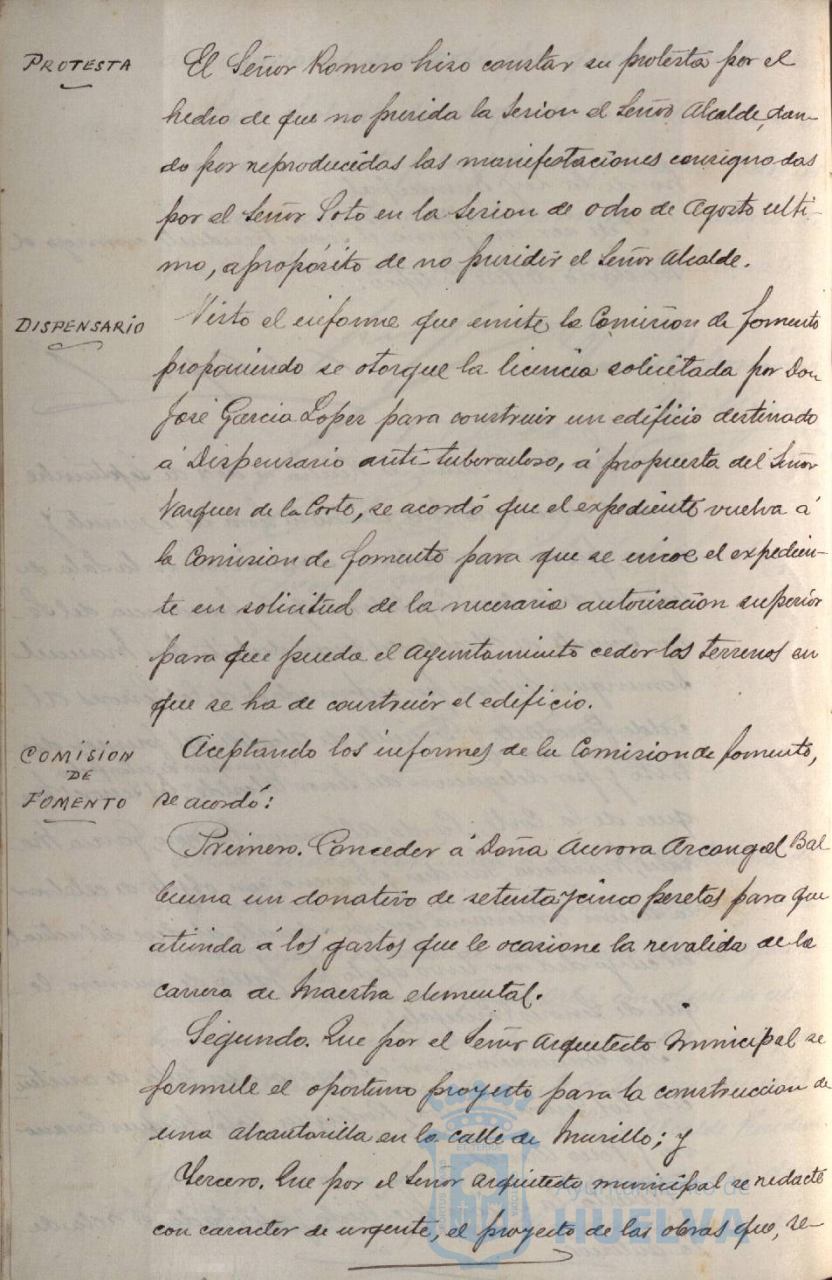 PROTESTA
El Señor Romero hizo constar su protesta por el
hecho de que no presida la Sesion el Señor Alcalde, dan-
do por reproducidas las manifestaciones consignadas
por el Señor Soto en la Sesion de ocho de Agosto ulti-
mo, a propósito de no presidir el Señor Alcalde.
DISPENSARIO
Visto el informe que emite la Comision de fomento
proponiendo se otorgue la licencia solicitada por Don
José Garcia Lopez para construir un edificio destinado
á Dispensario anti-tuberculoso, á propuesta del Señor
Vazquez de la Corte, se acordó que el expediente vuelva á
la Comision de fomento para que se incoe el expedien-
te en solicitud de la necesaria autorizacion superior
para que pueda el Ayuntamiento ceder los terrenos en
que se ha de construir el edificio.
COMISION
DE
FOMENTO
Aceptando los informes de la Comision de fomento,
se acordó:
Primero. Conceder á Doña Aurora Arcangel Bal
buena un donativo de setenta y cinco pesetas para que
atienda á los gastos que le ocasione la revalida de la
carrera de Maestra elemental.
Segundo. Que por el Señor Arquitecto Municipal se
formule el oportuno proyecto para la construccion de
una alcantarilla en la calle de Murillo; y
Tercero. Que por el Señor Arquitecto municipal se redacte
con caracter de urgente, el proyecto de las obras que, se-
Ayuntamiento de
HUELVA